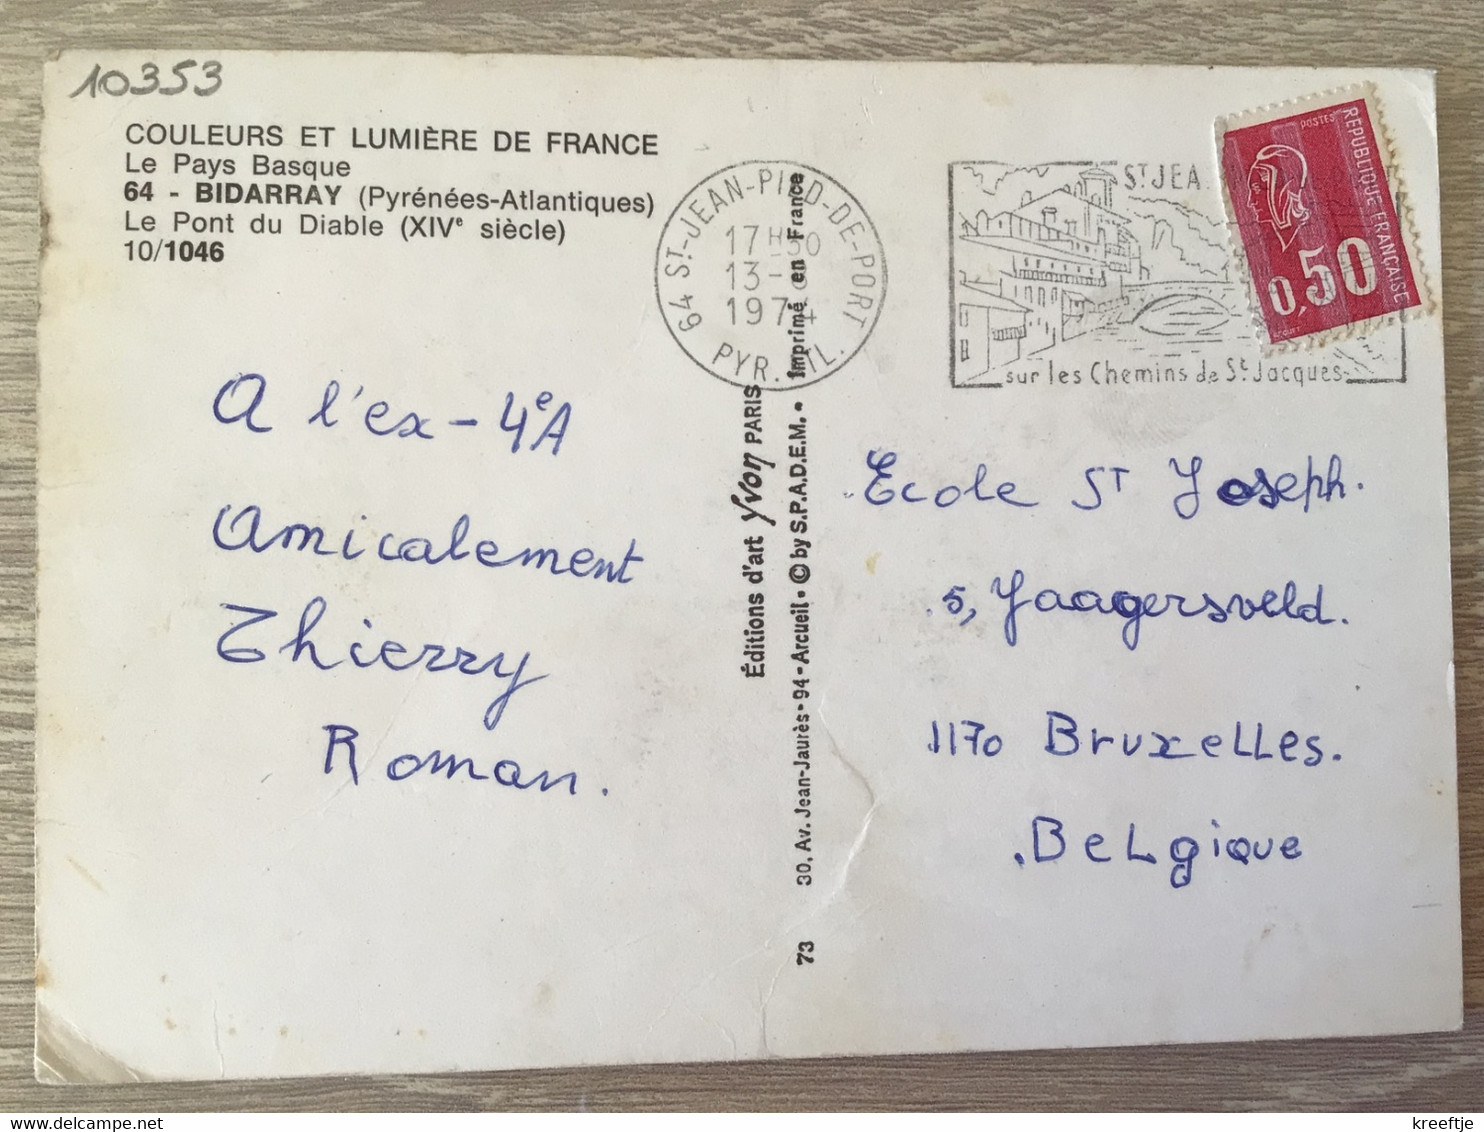 10353
COULEURS ET LUMIÈRE DE FRANCE
Le Pays Basque
64 - BIDARRAY (Pyrénées-Atlantiques)
Le Pont du Diable (XIVe siècle)
10/1046
A l'ex-4eA
Amicalement
Thierry
Roman.
64 ST-JEAN-PIED-DE-PORT
17H30
13-
1974
PYR. ATL.
Éditions d'art Yvon PARIS
30, Av. Jean-Jaurès • 94 • Arcueil • © by S.P.A.D.E.M. • Imprimé en France
73
ST JEA
sur les Chemins de St Jacques
POSTES
REPUBLIQUE FRANÇAISE
0,50
Ecole ST Joseph.
5, Jaagersveld.
1170 Bruxelles.
Belgique
kreeftje